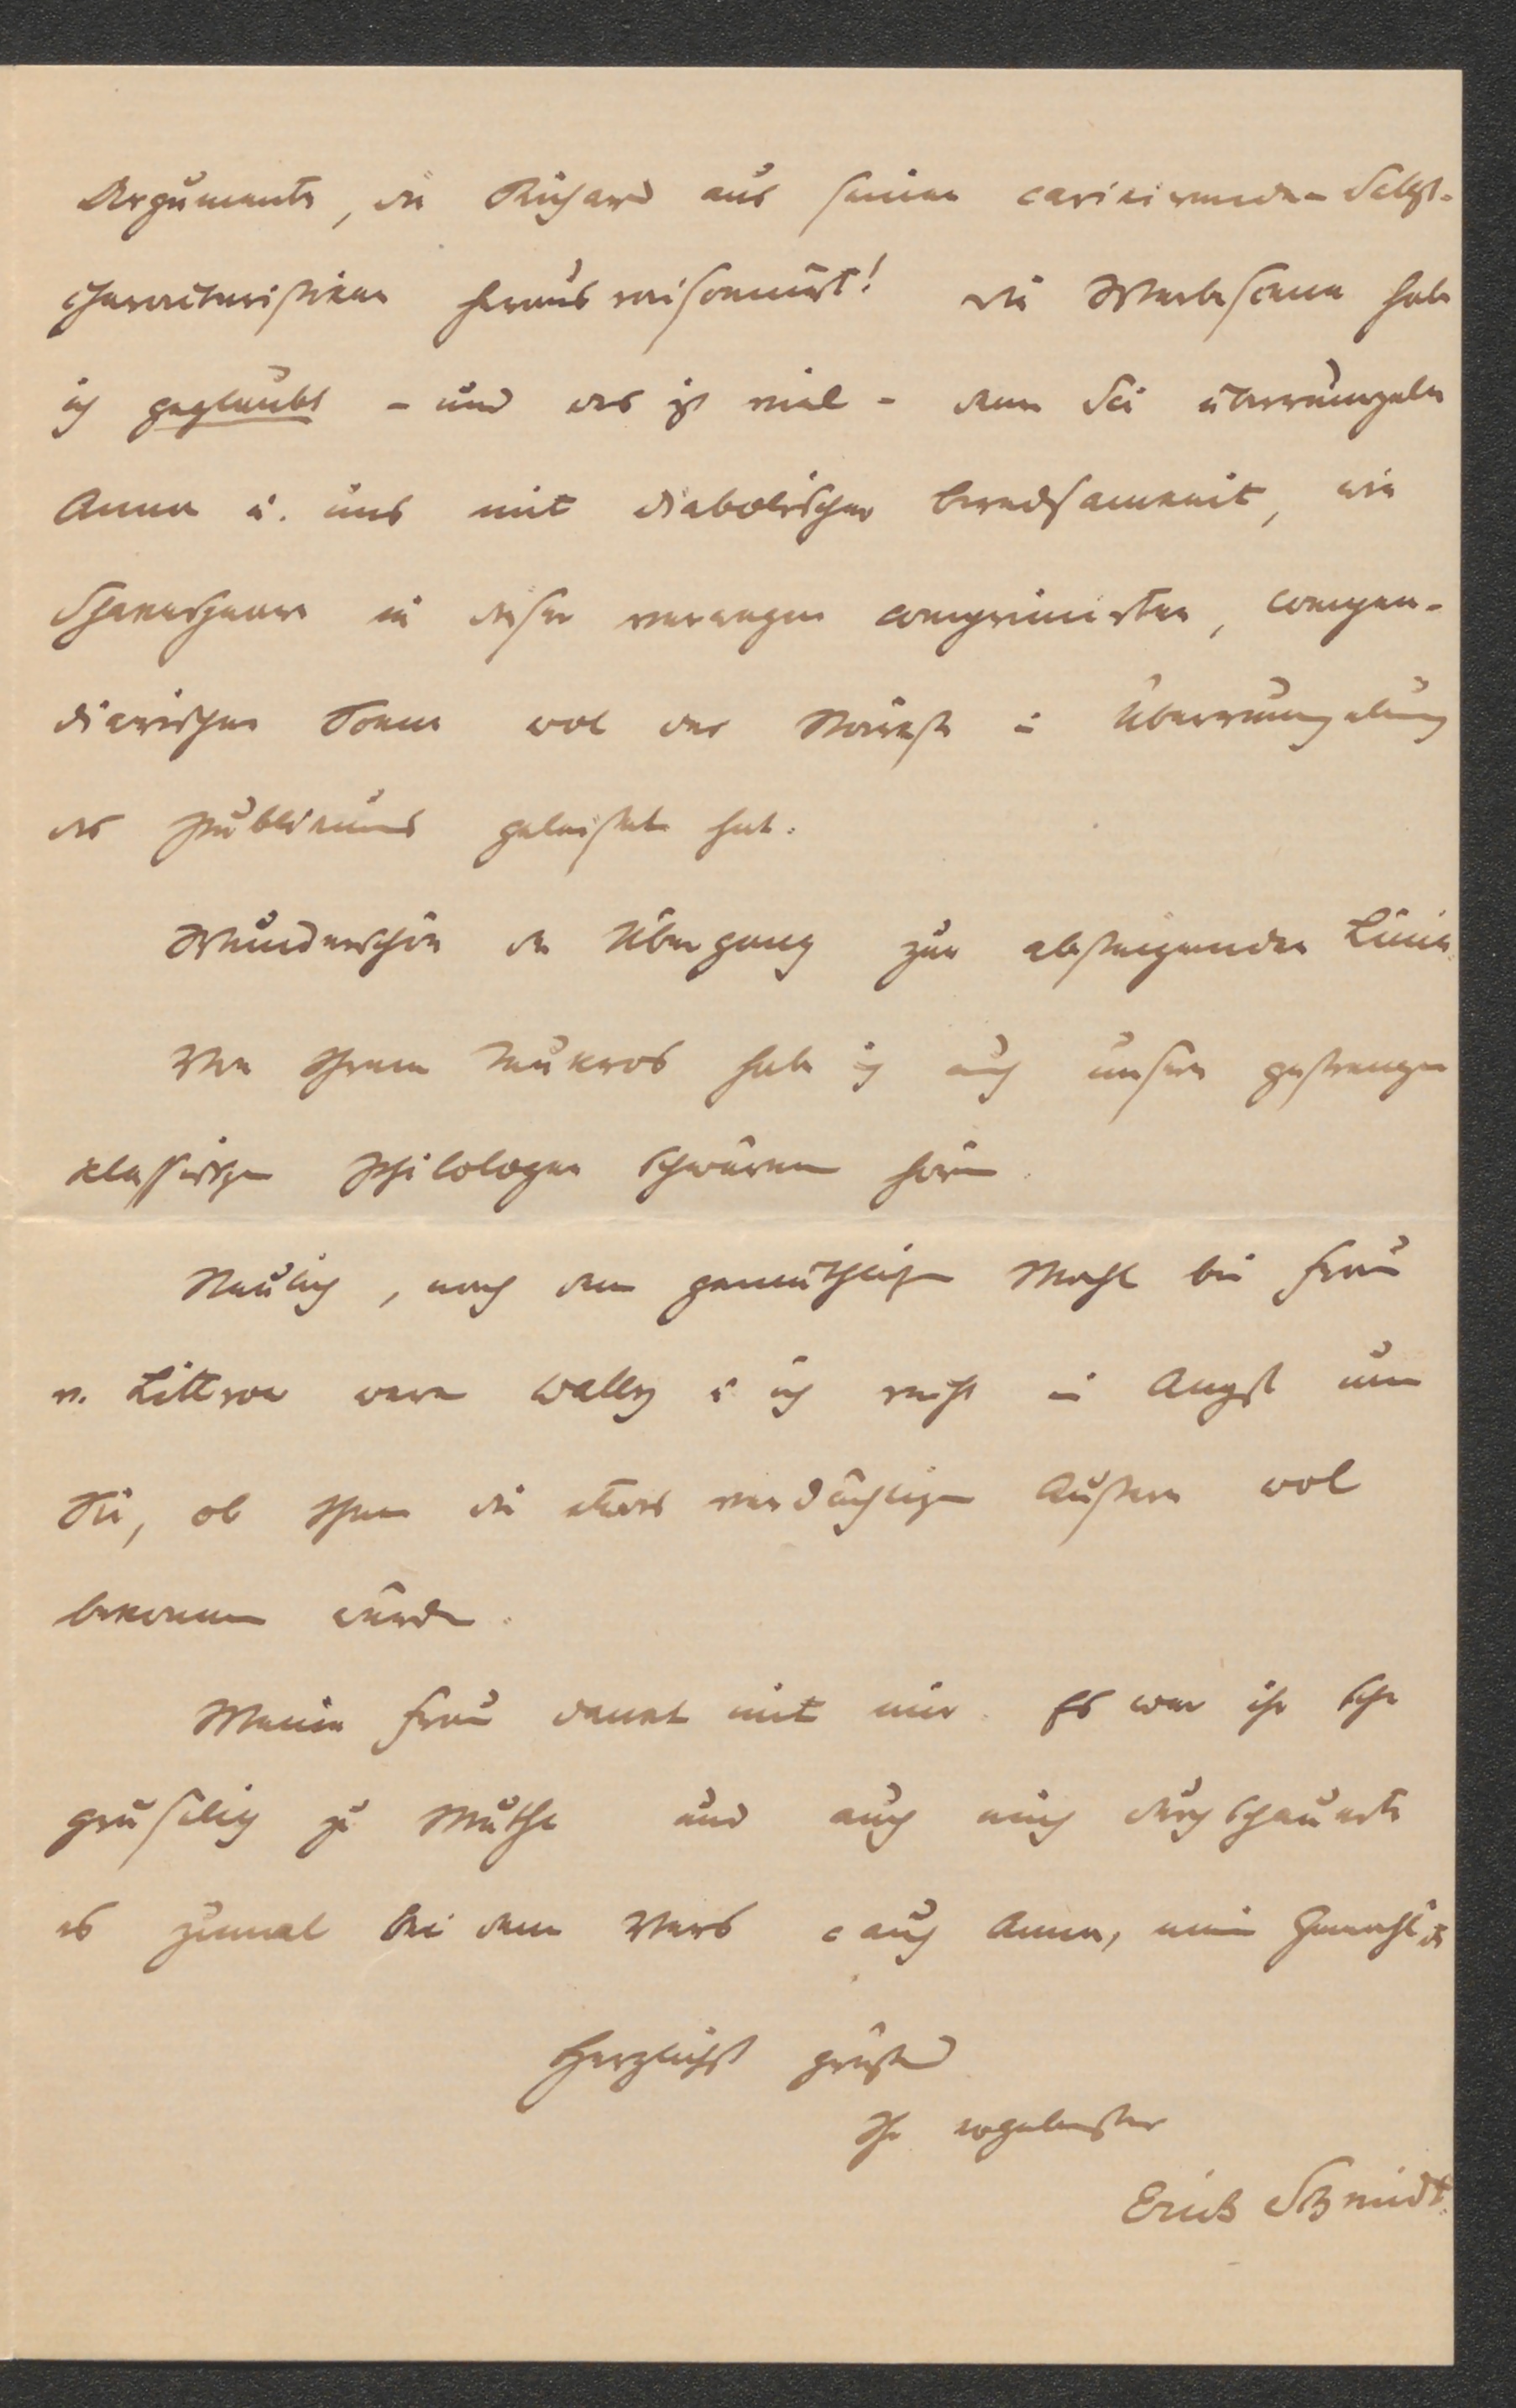 Argumente, die Richard aus seinen caricirenden Selbst-
charakteristiken heraus raisonnirt! Die Werbescene habe
ich geglaubt – und das ist viel – denn Sie überrumpeln
Anna u. uns mit diabolischer Beredsamkeit, wie
Shakespeare in dieser verwegen comprimirten, compen-
diarischen Scene wol das Stärkste in Überrumpelung
des Publikums geleistet hat.
Wunderschön der Übergang zur absteigenden Linie.
Von Ihrem Teukros habe ich auch unsern gestrengen
klassischen Philologen schwärmen hören.
Neulich, nach dem gemüthlichen Mahl bei Frau
v. Littrow waren Wally u ich recht in Angst um
Sie, ob Ihnen die etwas verdächtigen Austern wol
bekommen würden.
Meine Frau dankt mit mir. Es war ihr sehr
gruselig zu Muthe und auch mich durchschauerte
es zumal bei dem Vers „auch Anna, mein Gemahl“
Herzlichst grüßend
Ihr ergebenster
Erich Schmidt.